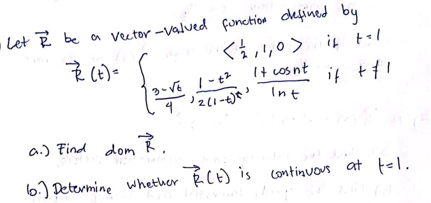 Let R⃗ be a vector-valued function defined by
R⃗(t) = { <1/2, 1, 0> if t=1
3-√t/4, 1-t²/2(1-t)t, 1+cosπt/ln t if t≠1
a.) Find dom R⃗.
b.) Determine whether R⃗(t) is continuous at t=1.